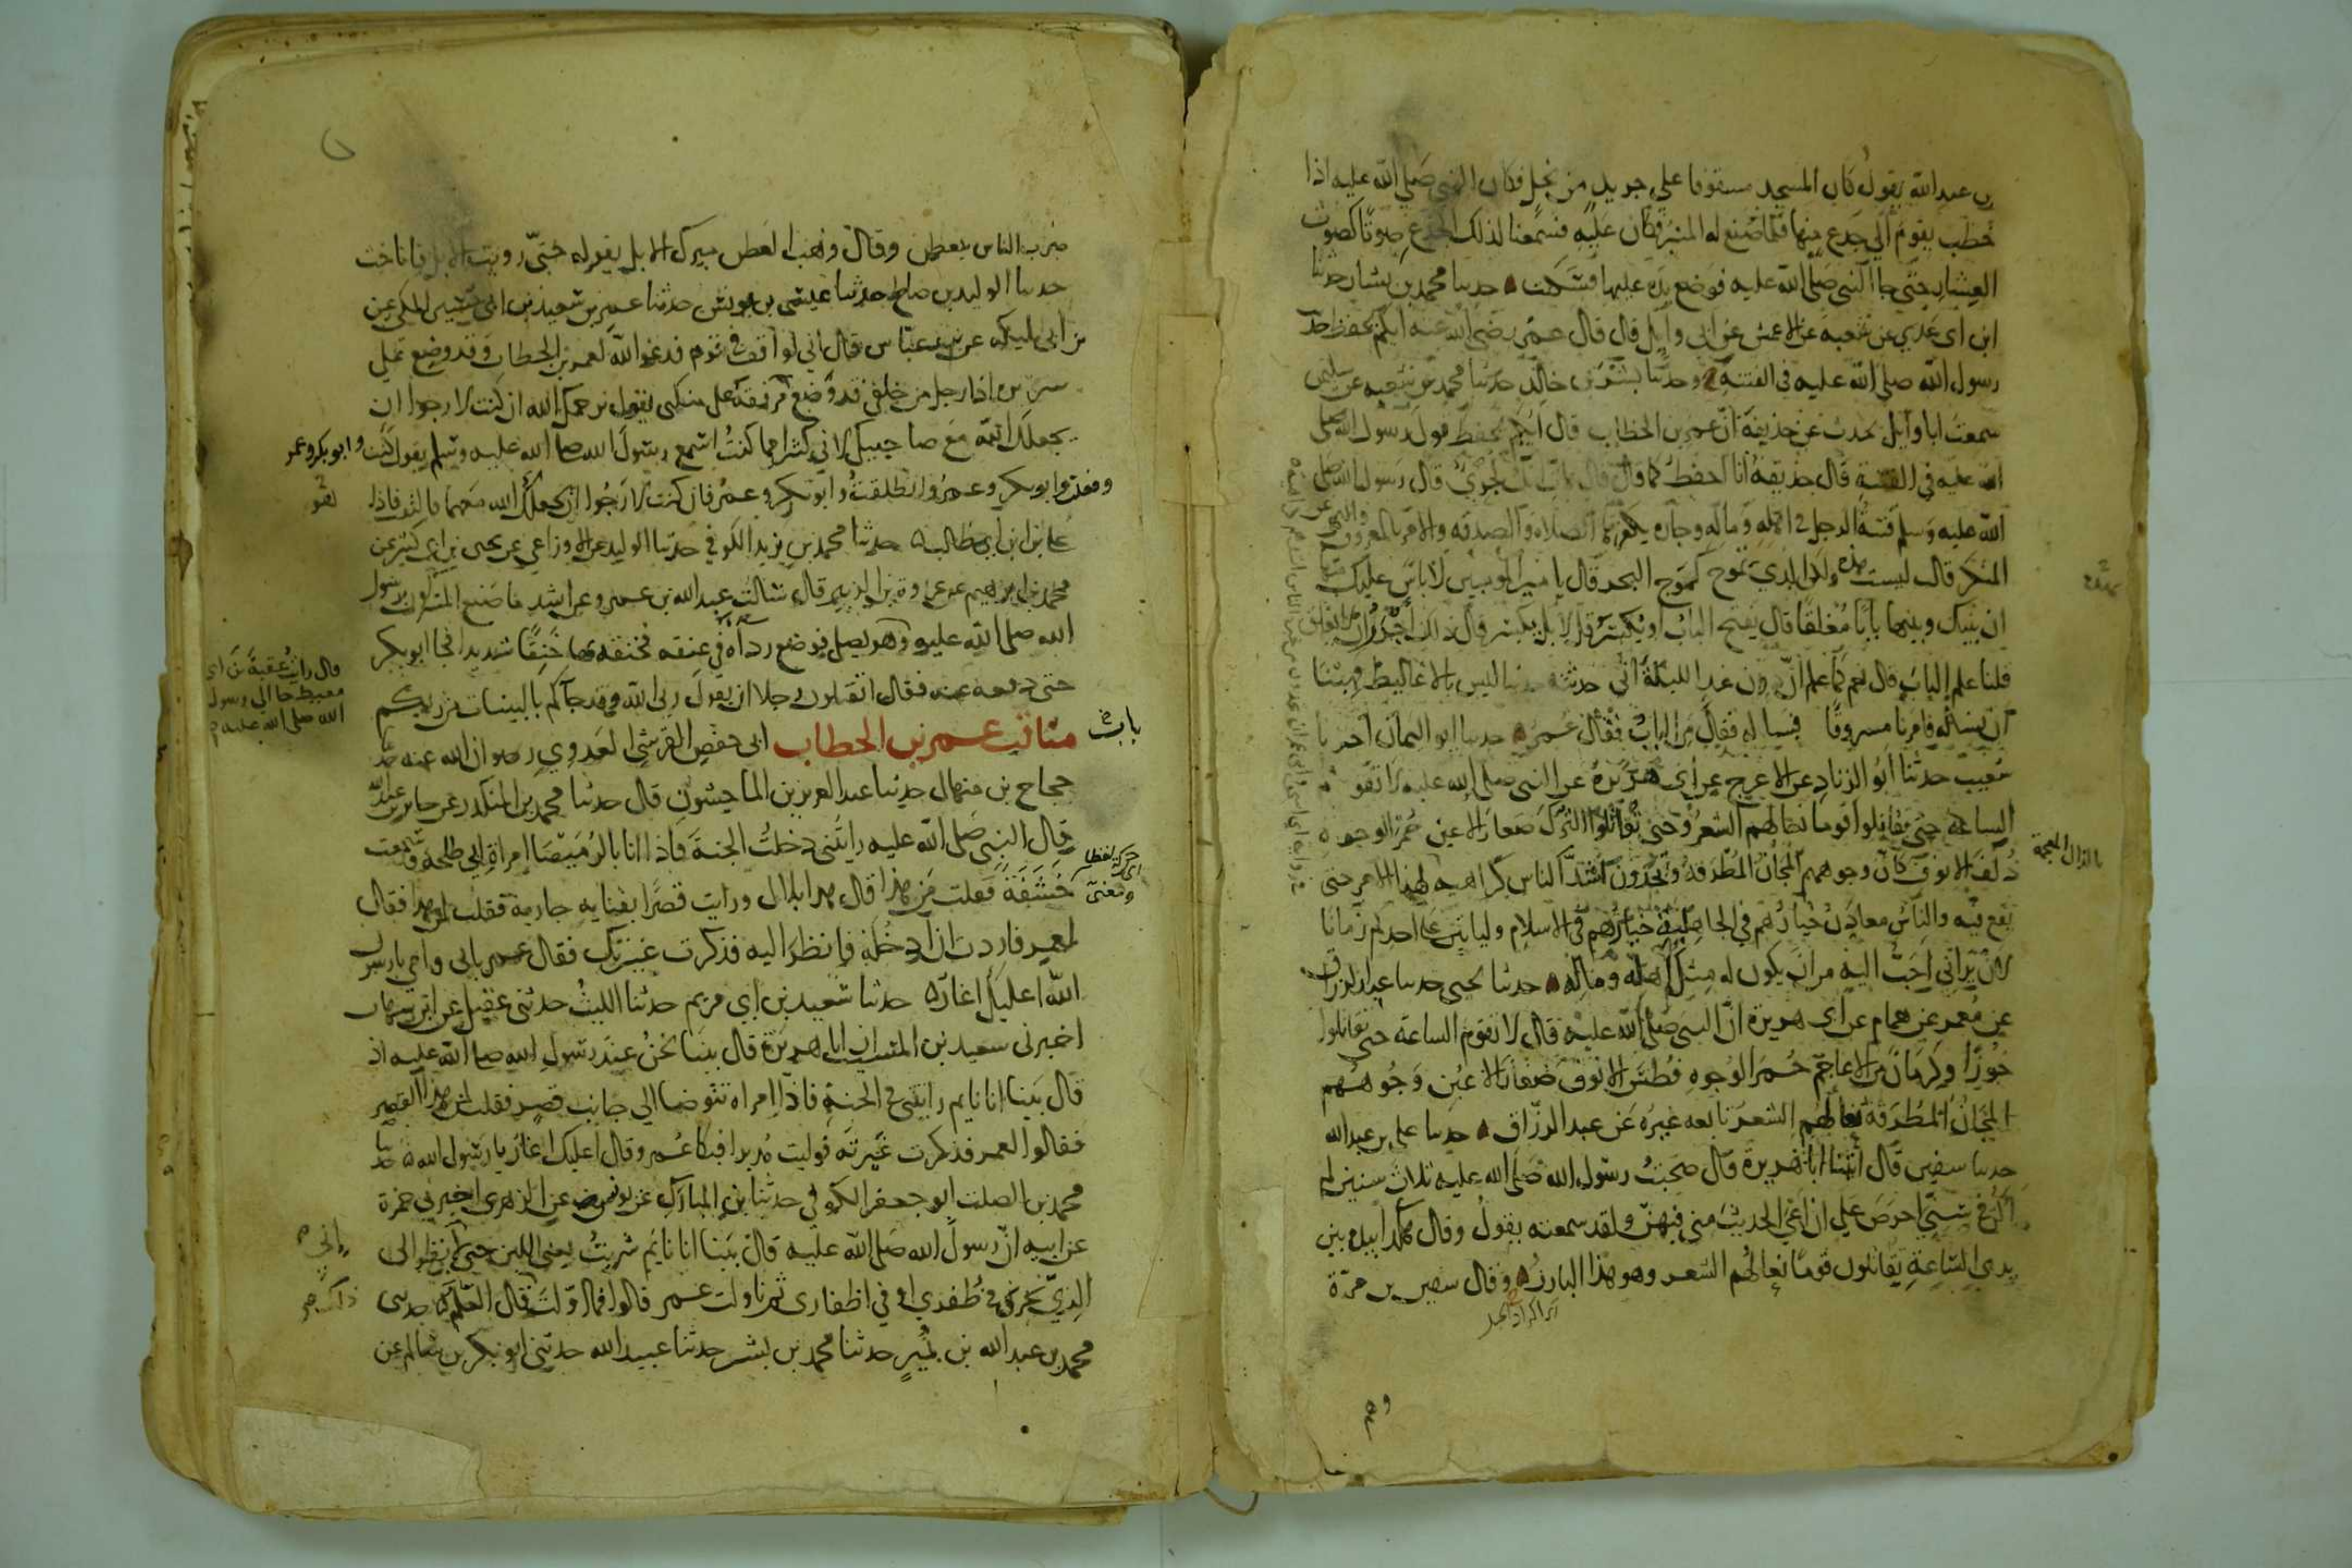 بن عبد الله يقول كان المسجد مسقوفا على جريد من نخل فكان النبي صلى الله عليه اذا
خطب يقوم الى جذع منها فلما صنع له المنبر فكان عليه فسمعنا لذلك الجذع صوتا كصوت
العشار حتى جا النبي صلى الله عليه فوضع يده عليها فسكنت حدثنا محمد بن بشار حدثنا
ابن ابي عدي عن شعبة عن الاعمش عن ابي وايل قال قال عمر رضي الله عنه ايكم يحفظ حد
رسول الله صلى الله عليه في الفتنة وحدثنا بشر بن خالد حدثنا محمد عن شعبة عن سليمن
سمعت ابا وايل يحدث عن حذيفة ان عمر بن الخطاب قال ايكم يحفظ قول رسول الله صلى
الله عليه في الفتنة قال حذيفة انا احفظ كما قال قال هات انك لجري قال رسول الله صلى
الله عليه وسلم فتنة الرجل في اهله وماله وجاره يكفرها الصلاة والصدقة والامر بالمعروف والنهي عن
المنكر قال ليست هذه ولكن الذي تموج كموج البحر قال يا امير المومنين لا باس عليك منها
ان بينك وبينها بابا مغلقا قال يفتح الباب او يكسر قال لا بل يكسر قال ذاك اجدر ان لا يغلق
قلنا علم الباب قال نعم كما علم ان دون غد الليلة اني حدثته حديثا ليس بالاغاليط فهبنا
ان نساله فامرنا مسروقا فساله فقال من الباب فقال عمر حدثنا ابو اليمان اخبرنا
شعيب حدثنا ابو الزناد عن الاعرج عن ابي هريرة عن النبي صلى الله عليه لا تقوم
الساعة حتى تقاتلوا قوما نعالهم الشعر وحتى تقاتلوا الترك صغار الاعين حمر الوجوه
ذلف الانوف كان وجوههم المجان المطرقة وتجدون اشد الناس كراهية لهذا الامر حتى
بالذال المعجمة
يقع فيه والناس معادن خيارهم في الجاهلية خيارهم في الاسلام ولياتين على احدكم زمان
لان يراني احب اليه من ان يكون له مثل اهله وماله حدثنا يحيى حدثنا عبد الرزاق
عن معمر عن همام عن ابي هريرة ان النبي صلى الله عليه قال لا تقوم الساعة حتى تقاتلوا
خوزا وكرمان من الاعاجم حمر الوجوه فطس الانوف صغار الاعين وجوههم
المجان المطرقة نعالهم الشعر تابعه غيره عن عبد الرزاق حدثنا علي بن عبد الله
حدثنا سفين قال اتينا ابا هريرة قال صحبت رسول الله صلى الله عليه ثلاث سنين لم
اكن في سني احرص على ان اعي الحديث مني فيهن ولقد سمعته يقول وقال هكذا بيده بين
يدي الساعة يقاتلون قوما نعالهم الشعر وهو هذا البارز وقال سفين بن مرة
وهم
ضرب الناس بعطن وقال وهب العطن مبرك الابل يقول حتى رويت الابل فاناخت
حدثنا الوليد بن صالح حدثنا عيسى بن يونس حدثنا عمر بن سعيد بن ابي حسين المكي عن
بن ابي مليكة عن ابن عباس قال اني لواقف في قوم فدعوا الله لعمر بن الخطاب وقد وضع على
سريره اذا رجل من خلفي قد وضع مرفقه على منكبي يقول يرحمك الله ان كنت لارجوا ان
يجعلك الله مع صاحبيك لاني كثيرا مما كنت اسمع رسول الله صلى الله عليه وسلم يقول كنت وابو بكر وعمر
وفعلت وابو بكر وعمر وانطلقت وابو بكر وعمر فان كنت لارجوا ان يجعلك الله معهما فالتفت فاذا
علي بن ابي طالب حدثنا محمد بن يزيد الكوفي حدثنا الوليد عن الاوزاعي عن يحيى بن ابي كثير عن
محمد بن ابرهيم عن عروة بن الزبير قال سالت عبد الله بن عمرو عن اشد ما صنع المشركون برسول
الله صلى الله عليه وهو يصلي فوضع رداه في عنقه فخنقه بها خنقا شديدا فجا ابو بكر
قال رايت عقبة بن ابي
معيط جا الى رسول
الله صلى الله عليه
حتى دفعه عنه فقال اتقتلون رجلا ان يقول ربي الله وقد جاكم بالبينات من ربكم
باب مناقب عمر بن الخطاب ابي حفص القرشي العدوي رضوان الله عنه حد
حجاج بن منهال حدثنا عبد العزيز بن الماجشون قال حدثنا محمد بن المنكدر عن جابر بن عبد الله
قال النبي صلى الله عليه رايتني دخلت الجنة فاذا انا بالرميصا امراة ابي طلحة وسمعت
خشفة فقلت من هذا قال هذا بلال ورايت قصرا بفنايه جارية فقلت لمن هذا فقال
لعمر فاردت ان ادخله فانظر اليه فذكرت غيرتك فقال عمر بابي وامي يا رسول
الله اعليك اغار حدثنا سعيد بن ابي مريم حدثنا الليث حدثني عقيل عن ابن شهاب
اخبرني سعيد بن المسيب ان ابا هريرة قال بينا نحن عند رسول الله صلى الله عليه اذ
قال بينا انا نايم رايتني في الجنة فاذا امراة تتوضا الى جانب قصر فقلت لمن هذا القصر
فقالوا لعمر فذكرت غيرته فوليت مدبرا فبكا عمر وقال اعليك اغار يا رسول الله حدثنا
محمد بن الصلت ابو جعفر الكوفي حدثنا بن المبارك عن يونس عن الزهري اخبرني حمزة
عن ابيه ان رسول الله صلى الله عليه قال بينا انا نايم شربت يعني اللبن حتى انظر الى
الري يجري في ظفري او في اظفاري ثم ناولت عمر قالوا فما اولت قال العلم حدثني
محمد بن عبد الله بن نمير حدثنا محمد بن بشر حدثنا عبيد الله حدثني ابو بكر بن سالم عن